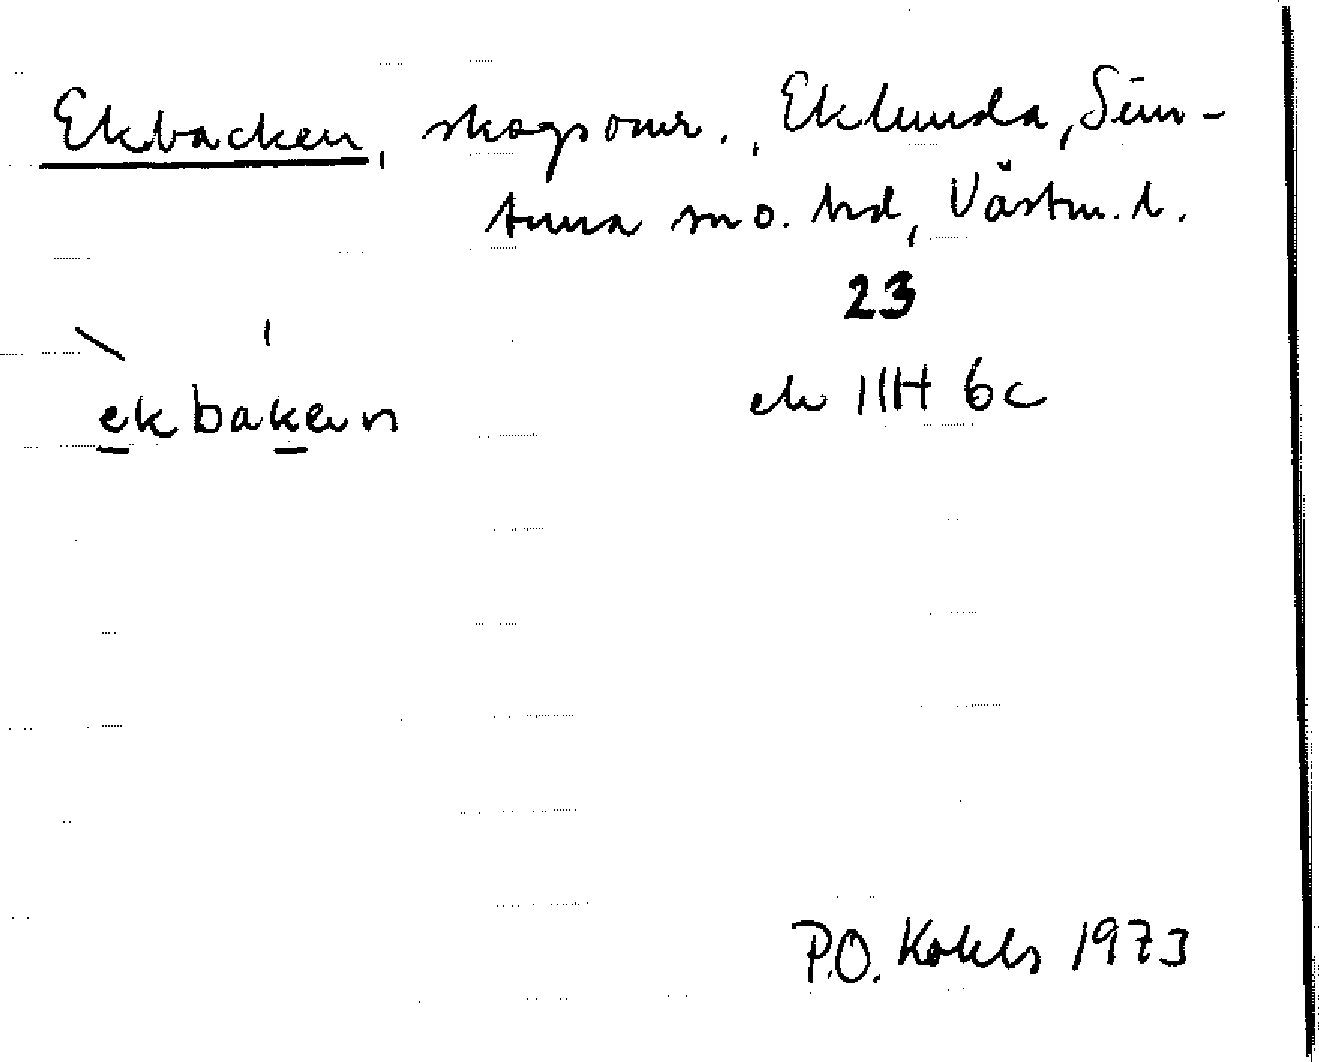 Ekbacken, skogsomr., Eklunda, Sim-
tuna sn o. hd, Västm. l.
23
ek 11H 6c
ekbaken
P.O. Kokls 1973